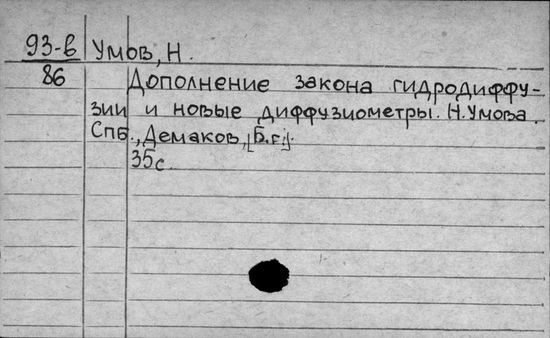 93-в Умов, Н.
86 Дополнение закона гидродиффу-
зии и новые диффузиометры. Н. Умова.
Спб., Демаков, [Б.г.].
35с